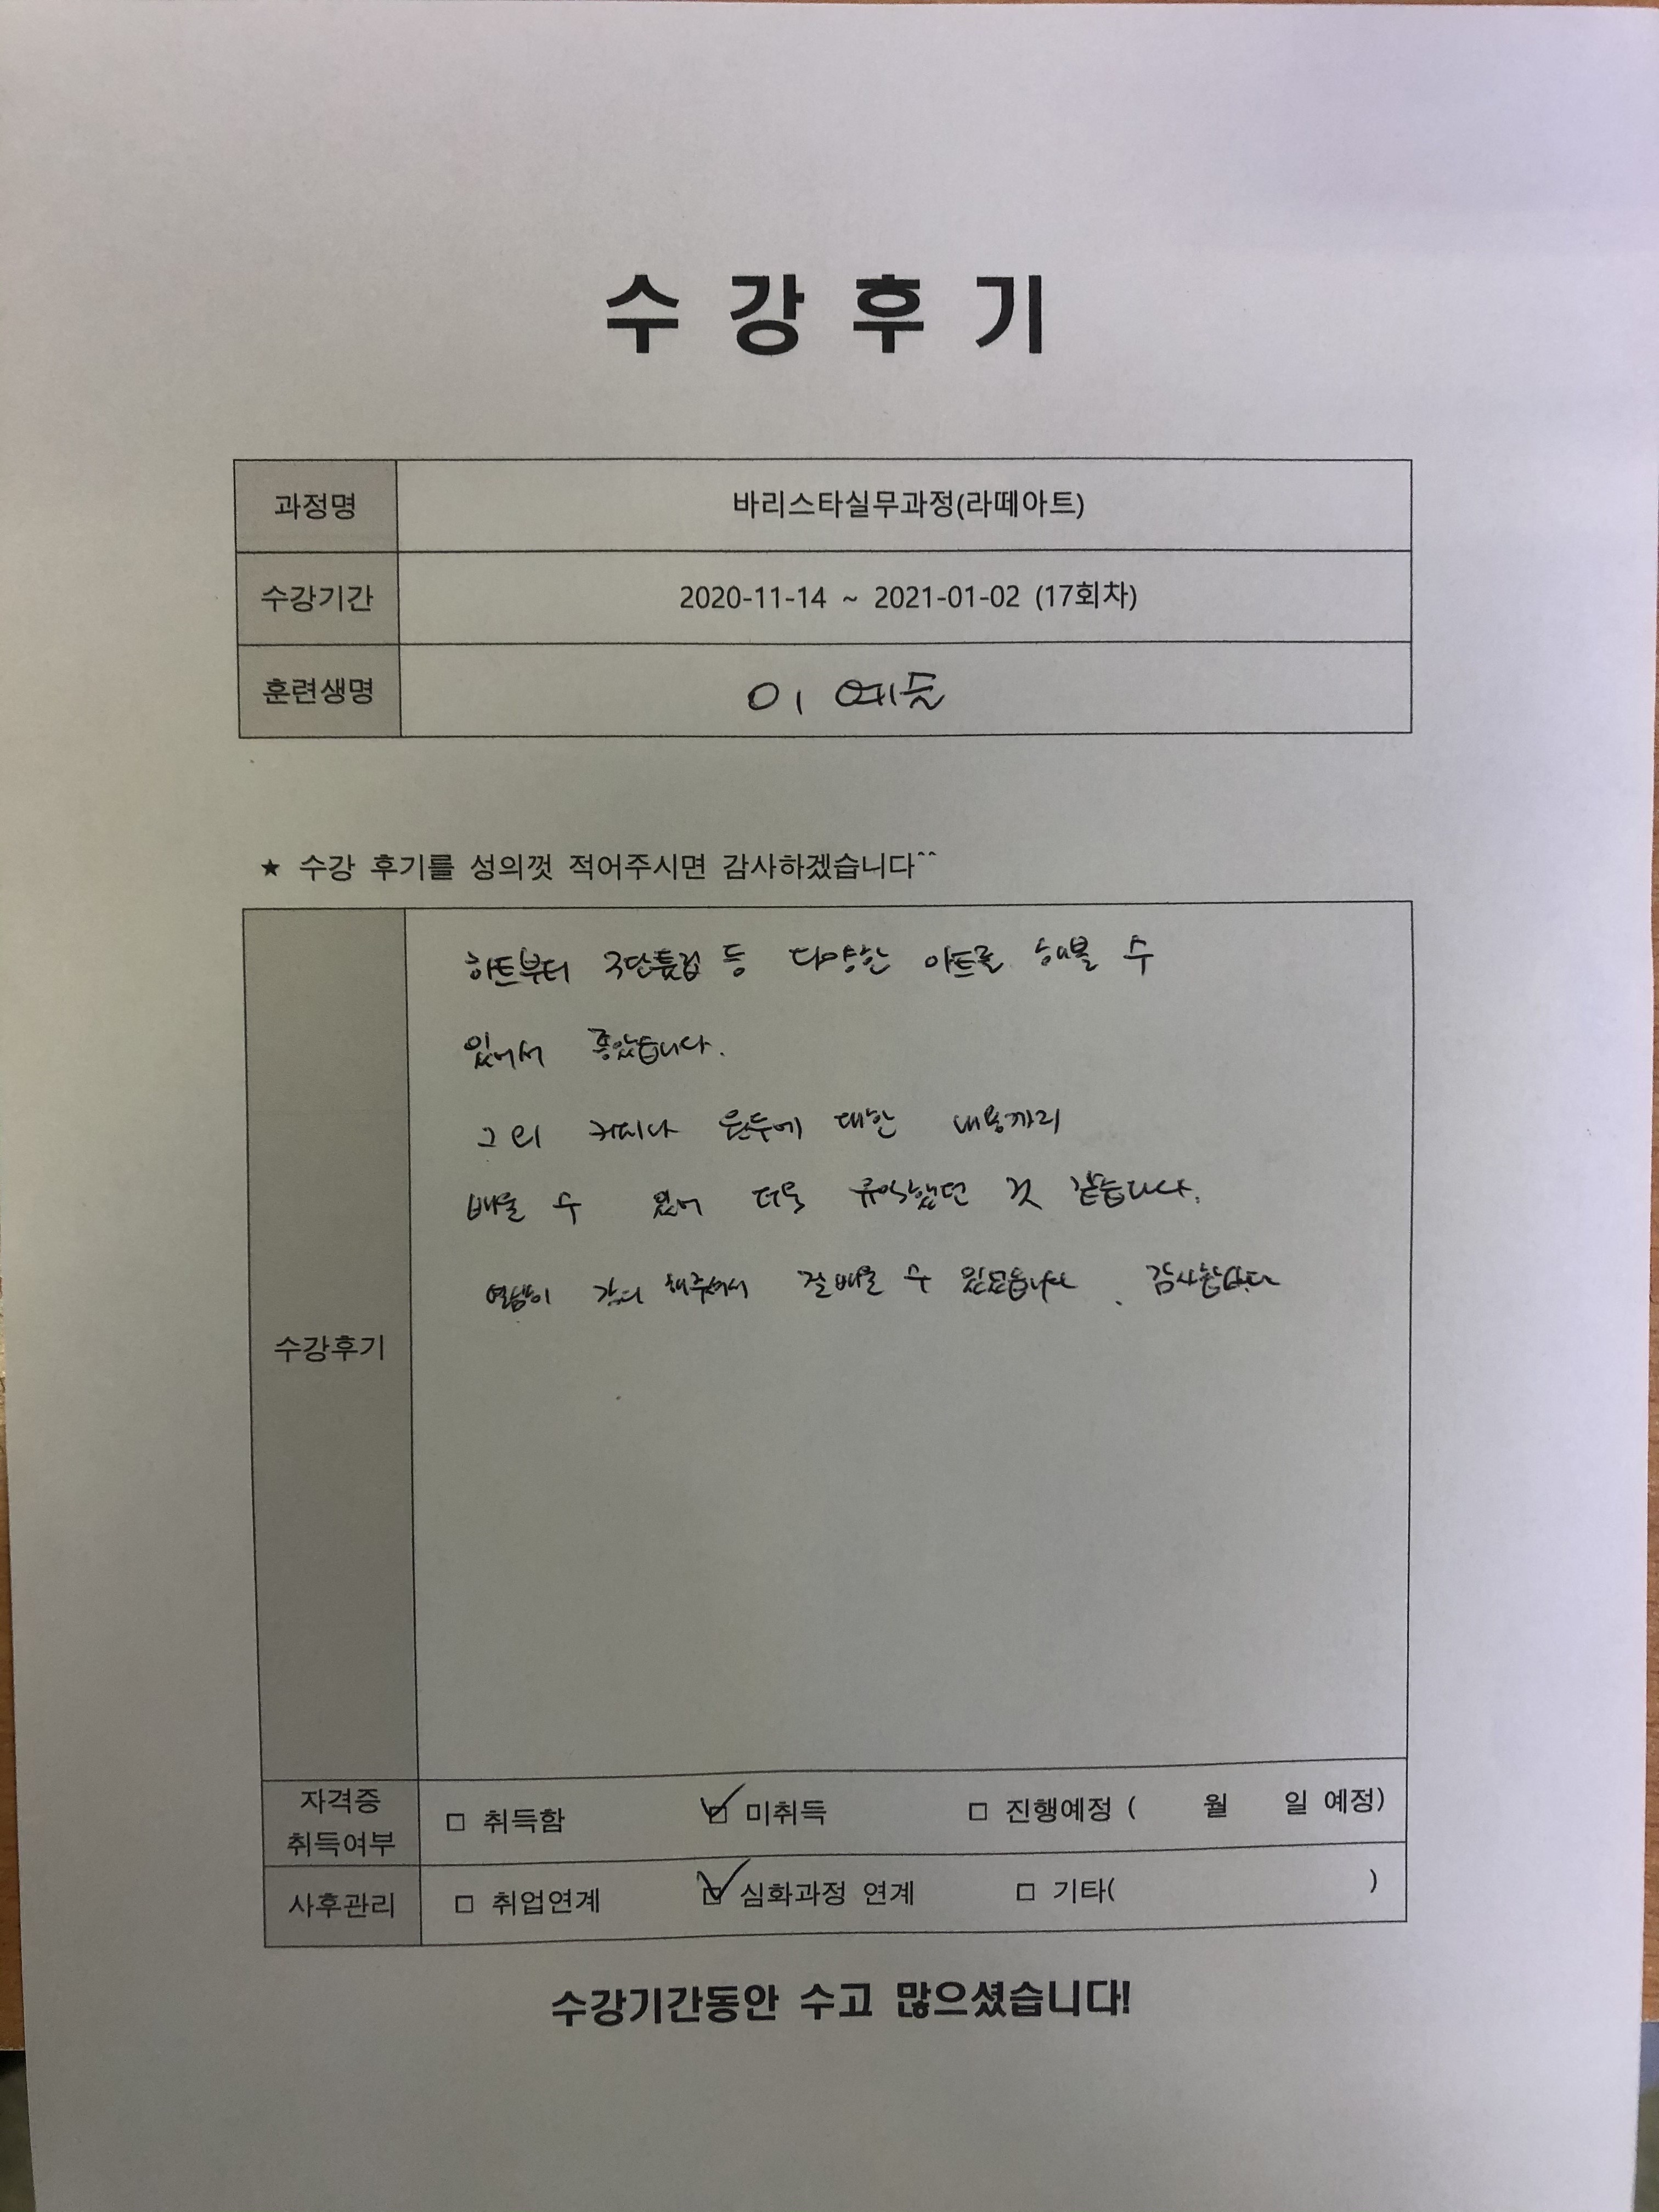 수강후기
과정명 바리스타실무과정(라떼아트)
수강기간 2020-11-14 ~ 2021-01-02 (17회차)
훈련생명 이 예든
★ 수강 후기를 성의껏 적어주시면 감사하겠습니다^^
하트부터 3단튤립 등 다양한 아트를 해볼 수
있어서 좋았습니다.
그 외 커피나 원두에 대한 내용까지
배울 수 있어 더욱 유익했던 것 같습니다.
열심히 강의 해주셔서 잘 배울 수 있었습니다. 감사합니다
수강후기
자격증
취득여부 □ 취득함 ☑ 미취득 □ 진행예정 ( 월 일 예정)
사후관리 □ 취업연계 ☑ 심화과정 연계 □ 기타( )
수강기간동안 수고 많으셨습니다!